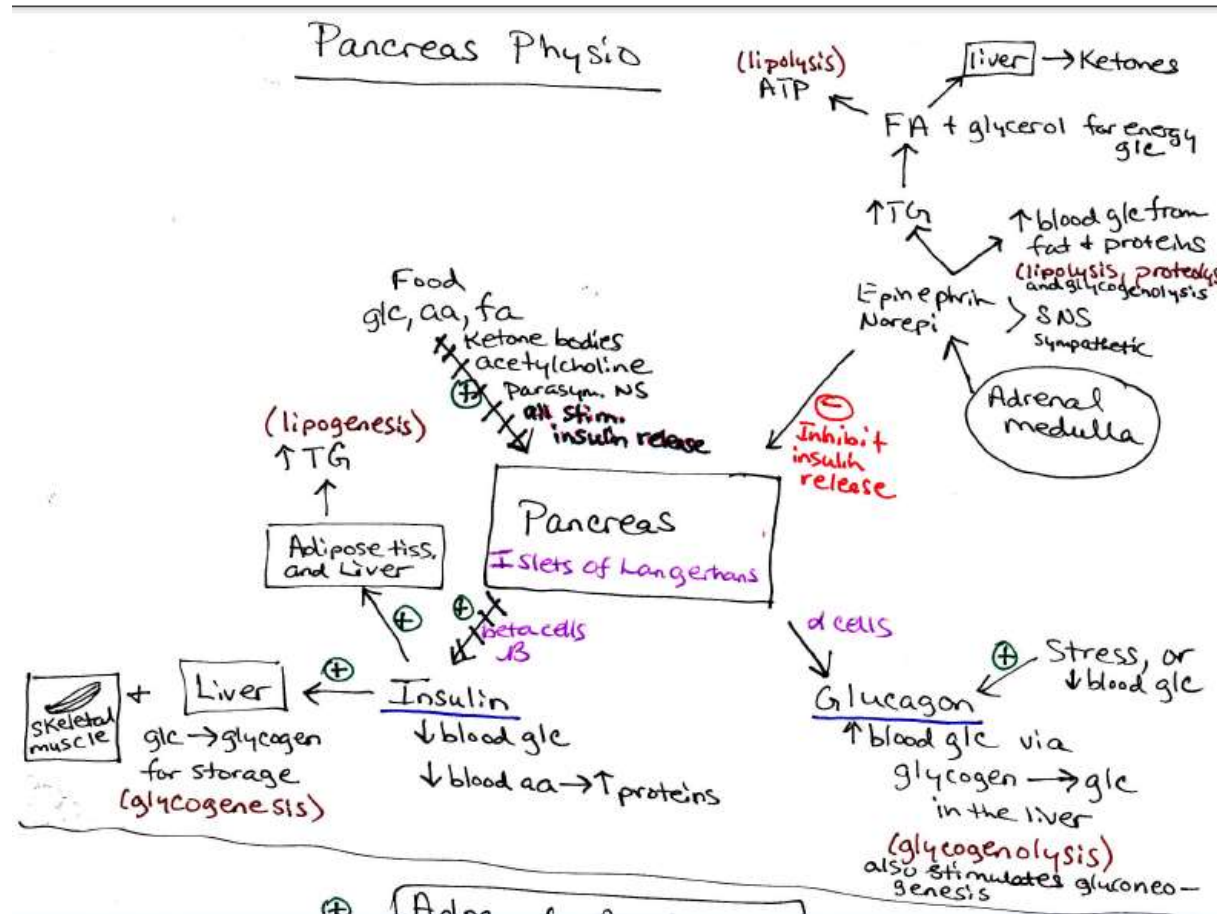 Pancreas Physio
(lipolysis)
ATP
liver → Ketones
FA + glycerol for energy
glc
↑TG
↑ blood glc from
fat + proteins
(lipolysis, proteolys
and glycogenolysis
Epinephrin
Norepi
SNS
Sympathetic
Adrenal
medulla
Food
glc, aa, fa
Ketone bodies
acetylcholine
Parasym. NS
all stim.
insulin release
+
−
Inhibit
insulin
release
(lipogenesis)
↑ TG
Adipose tiss.
and Liver
Pancreas
Islets of Langerhans
+
+
beta cells
β
α cells
+
Stress, or
↓ blood glc
skeletal
muscle
+
Liver
+
Insulin
glc → glycogen
for storage
(glycogenesis)
↓ blood glc
↓ blood aa → ↑ proteins
Glucagon
↑ blood glc via
glycogen → glc
in the liver
(glycogenolysis)
also stimulates gluconeo-
genesis
+